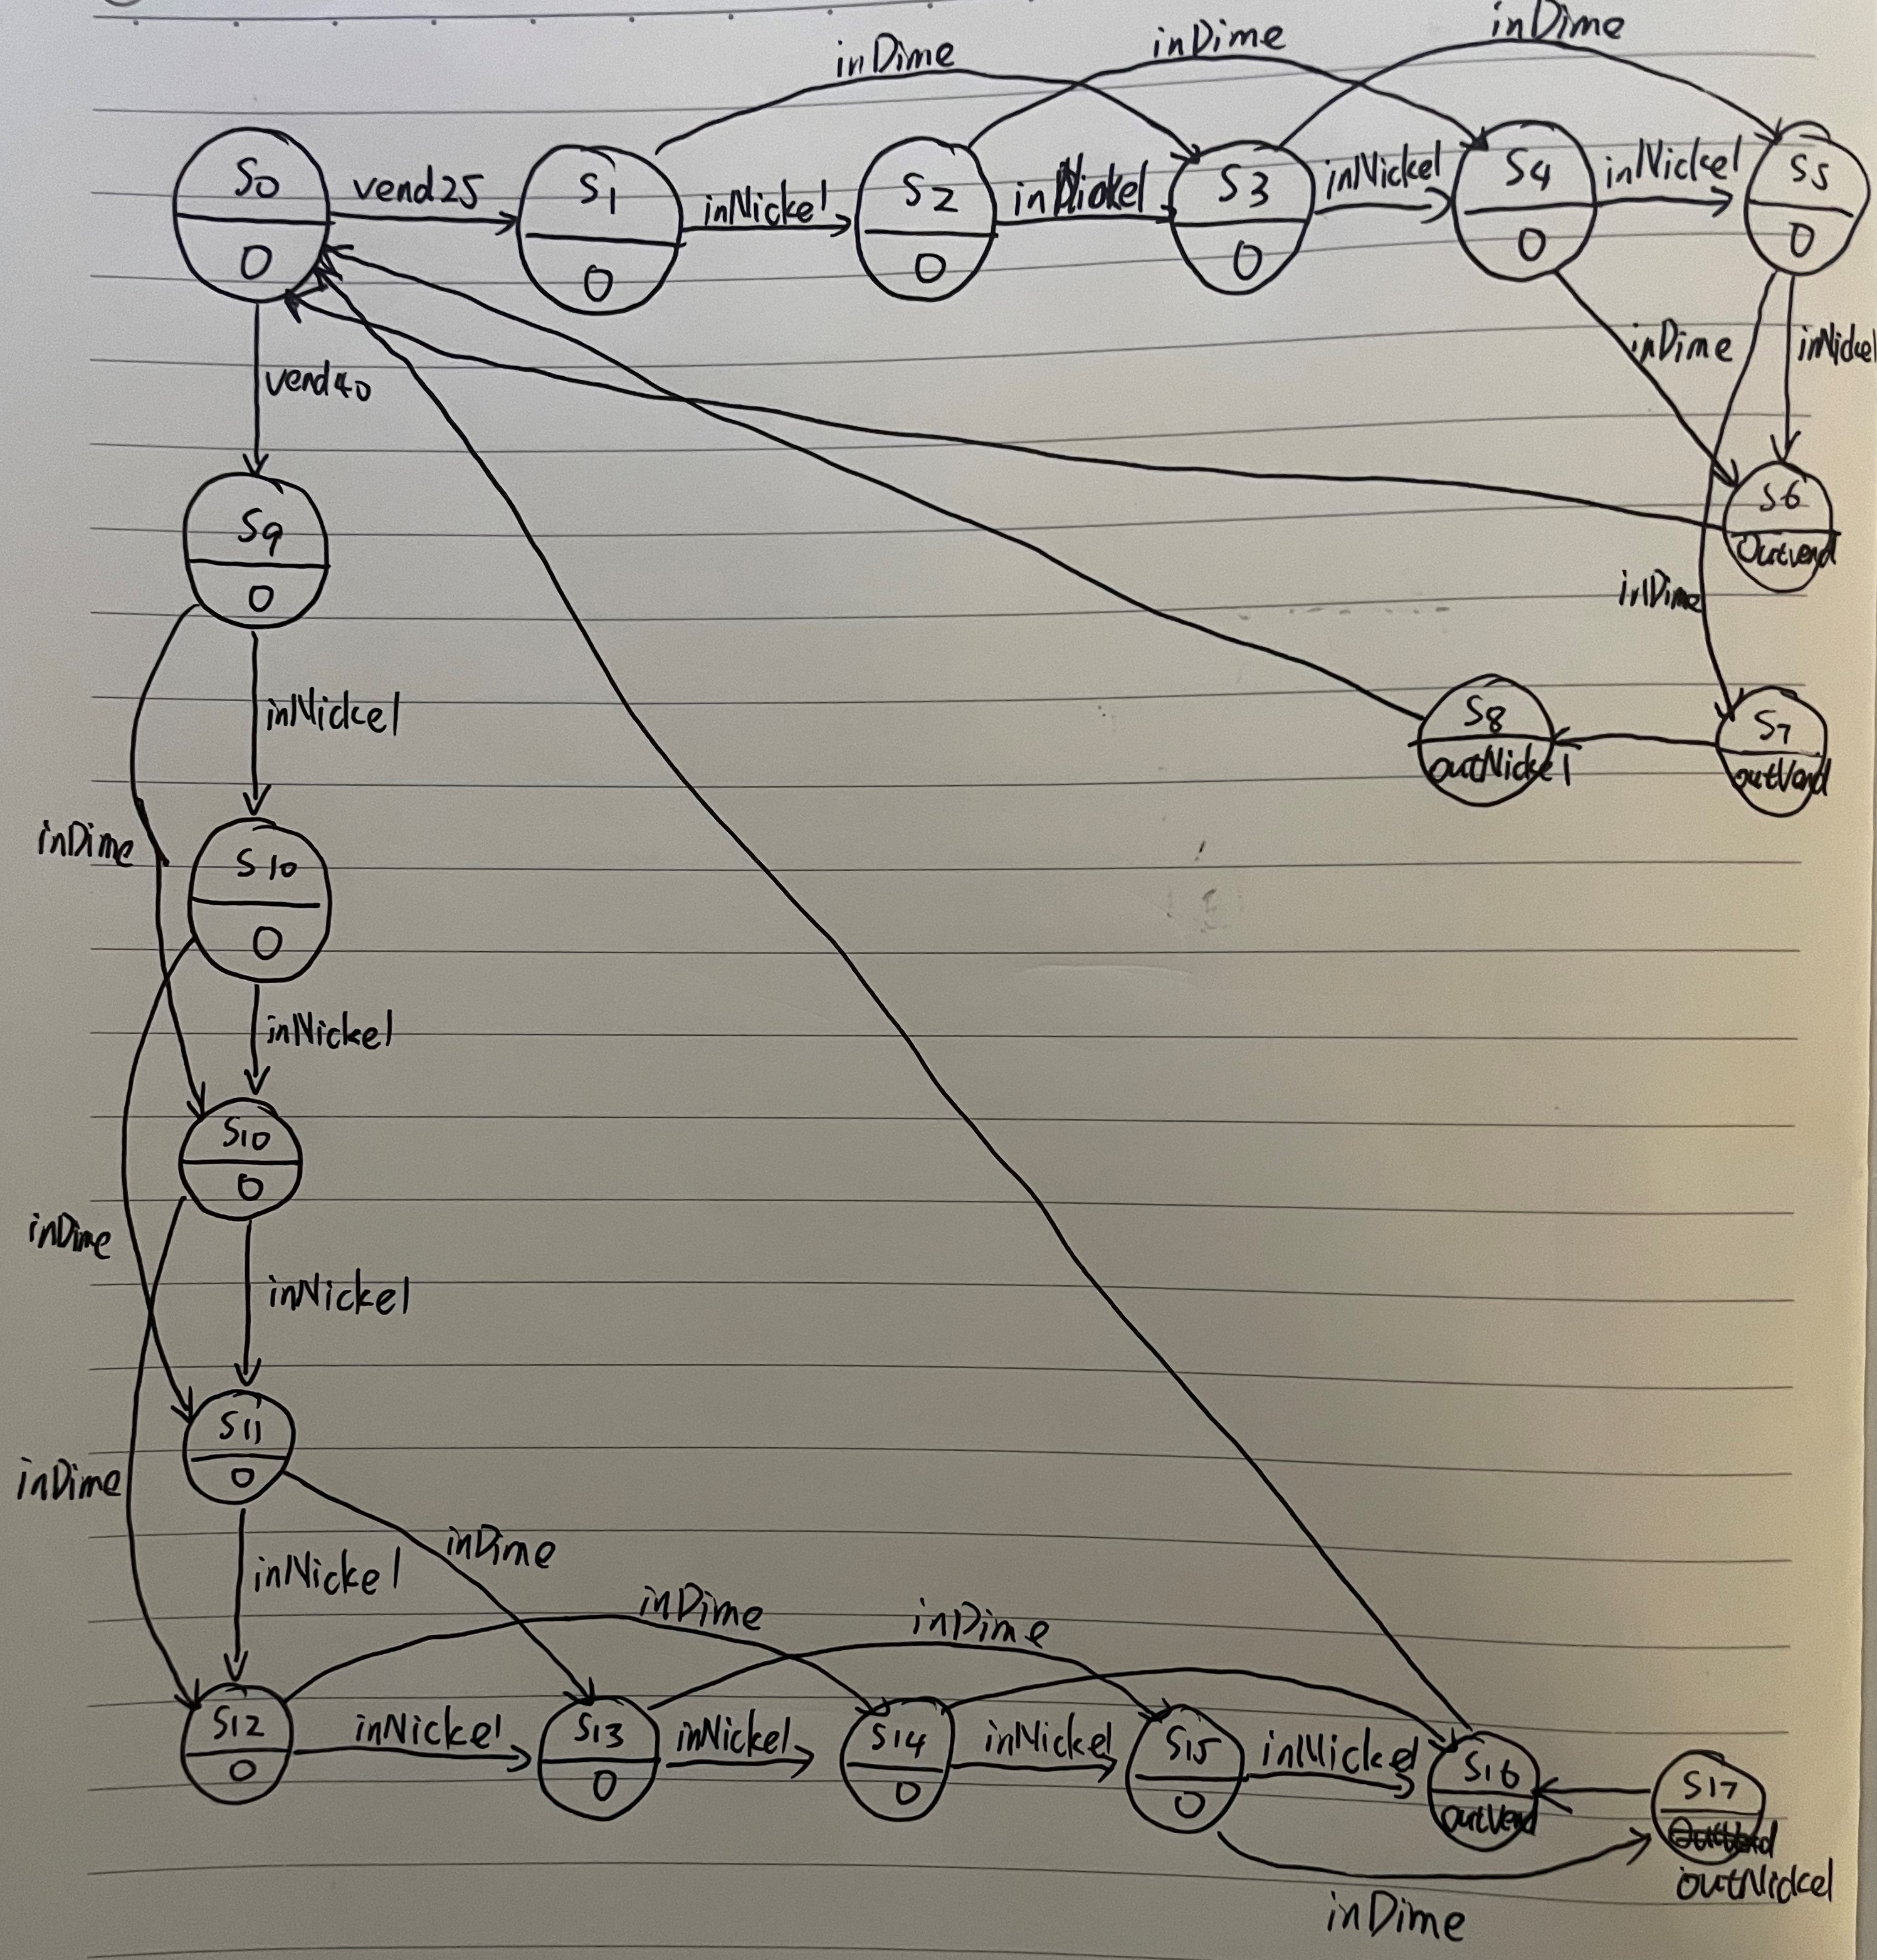 inDime
inDime
inDime
S0
0
vend25
S1
0
inNickel
S2
0
inNickel
S3
0
inNickel
S4
0
inNickel
S5
0
vend40
inDime
inNickel
S6
Outvend
inDime
S7
outVend
S8
outNickel
S9
0
inNickel
inDime
S10
0
inNickel
S10
0
inDime
inNickel
S11
0
inDime
inNickel
inDime
inDime
inDime
S12
0
inNickel
S13
0
inNickel
S14
0
inNickel
S15
0
inNickel
S16
outVend
S17
outNickel
inDime